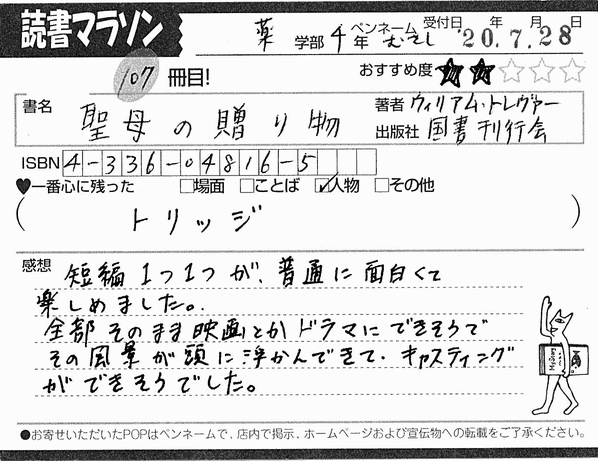 読書マラソン
薬 学部 4 年 ペンネーム むさし 受付日 '20 年 7 月 28 日
107 冊目!
おすすめ度 ★★☆☆☆
書名 聖母の贈り物
著者 ウィリアム・トレヴァー
出版社 国書刊行会
ISBN 4-336-04816-5
♥一番心に残った □場面 □ことば ☑人物 □その他
( トリッジ )
感想 短編1つ1つが、普通に面白くて
楽しめました。
全部そのまま映画とかドラマにできそうで
その風景が頭に浮かんできて、キャスティング
ができそうでした。
●お寄せいただいたPOPはペンネームで、店内で掲示、ホームページおよび宣伝物への転載をご了承ください。